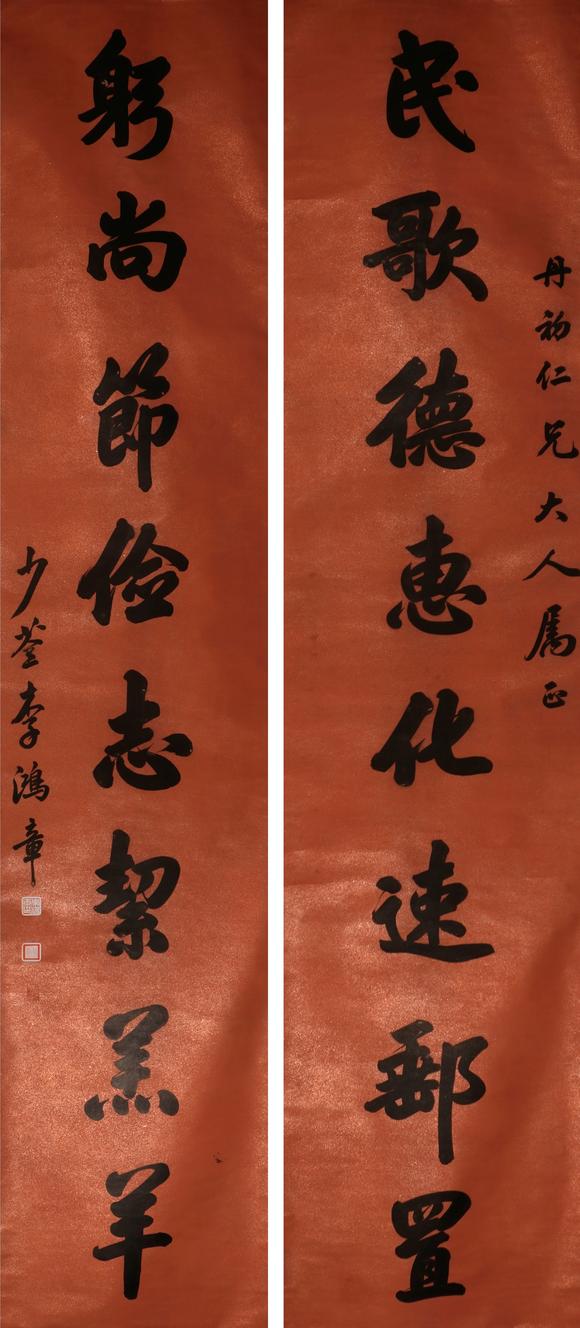 丹初仁兄大人属正
民歌德惠化速郵置
躬尚節儉志絜羔羊
少荃李鴻章